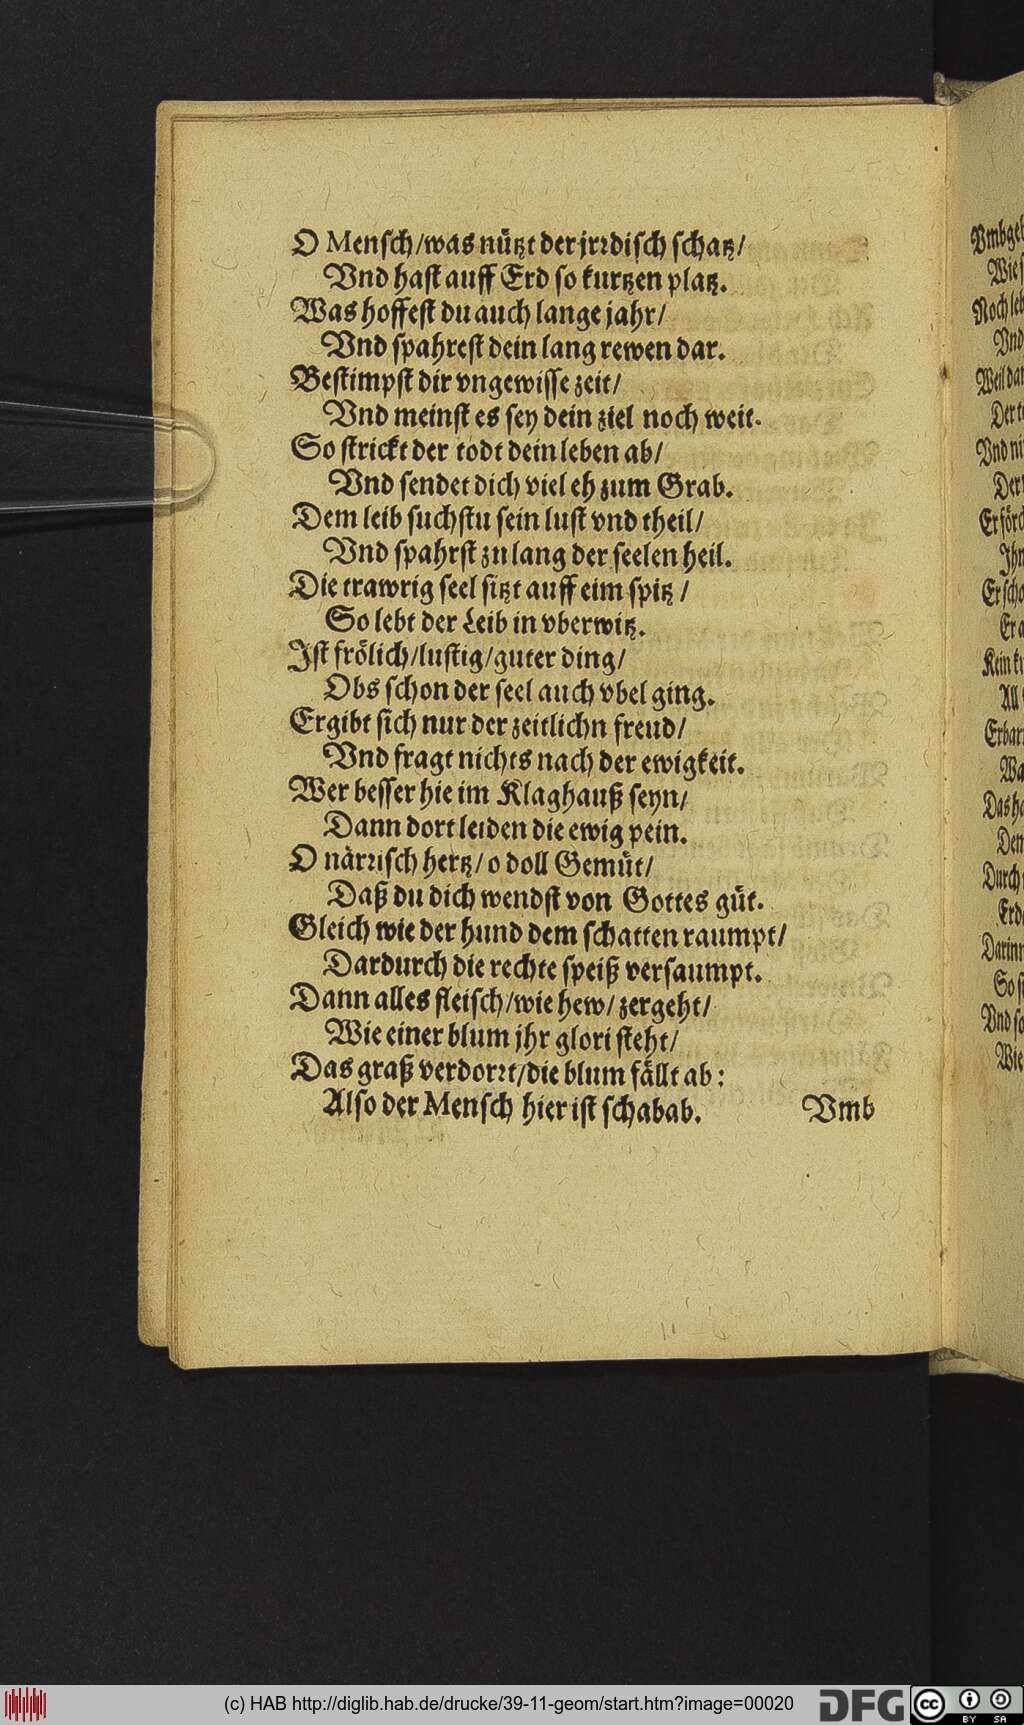 O Mensch/was nützt der jrrdisch schatz/
Vnd hast auff Erd so kurtzen platz.
Was hoffest du auch lange jahr/
Vnd spahrest dein lang rewen dar.
Bestimpst dir vngewisse zeit/
Vnd meinst es sey dein ziel noch weit.
So strickt der todt dein leben ab/
Vnd sendet dich viel eh zum Grab.
Dem leib suchstu sein lust vnd theil/
Vnd spahrst zu lang der seelen heil.
Die trawrig seel sitzt auff eim spitz /
So lebt der Leib in vberwitz.
Ist frölich/lustig/guter ding/
Obs schon der seel auch vbel ging.
Ergibt sich nur der zeitlichn freud/
Vnd fragt nichts nach der ewigkeit.
Wer besser hie im Klaghauß seyn/
Dann dort leiden die ewig pein.
O närrisch hertz/ o doll Gemüt/
Daß du dich wendst von Gottes güt.
Gleich wie der hund dem schatten raumpt/
Dardurch die rechte speiß versaumpt.
Dann alles fleisch/wie hew/ zergeht/
Wie einer blum jhr glori steht/
Das graß verdorrt/die blum fällt ab:
Also der Mensch hier ist schabab. Vmb
Wie
Vnd
Der
Vnd
Er
Wie
(c) HAB http://diglib.hab.de/drucke/39-11-geom/start.htm?image=00020
DFG
cc BY SA